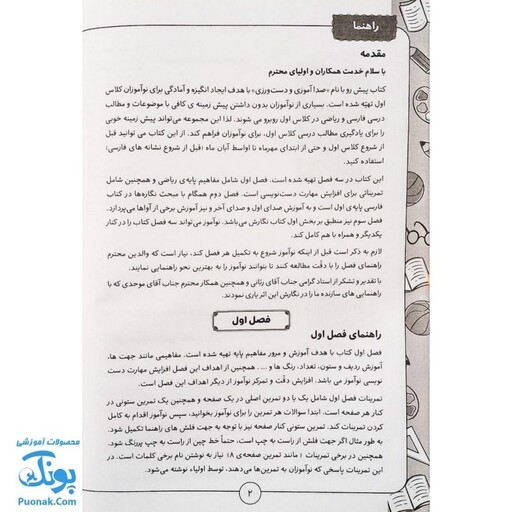 راهنما
مقدمه
با سلام خدمت همکاران و اولیای محترم
کتاب پیش رو با نام «صدا آموزی و دست‌ورزی» با هدف ایجاد انگیزه و آمادگی برای نوآموزان کلاس
اول تهیّه شده است. بسیاری از نوآموزان بدون داشتن پیش زمینه ی کافی با موضوعات و مطالب
درسی فارسی و ریاضی در کلاس اول روبرو می شوند. لذا این مجموعه می‌تواند پیش زمینه خوبی
را برای یادگیری مطالب درسی کلاس اول، برای نوآموزان فراهم کند. از این کتاب می توانید قبل
از شروع کلاس اول و حتی از ابتدای مهرماه تا اواسط آبان ماه (قبل از شروع نشانه های فارسی)
استفاده کنید.
این کتاب در سه فصل تهیه شده است. فصل اول شامل مفاهیم پایه‌ی ریاضی و همچنین شامل
تمریناتی برای افزایش مهارت دست‌نویسی است. فصل دوم همگام با مبحث نگاره‌ها در کتاب
فارسی پایه‌ی اول است و به آموزش صدای اول و صدای آخر و نیز آموزش برخی از آواها می‌پردازد.
فصل سوم نیز منطبق بر بخش اول کتاب نگارش می‌باشد. نوآموز می‌تواند سه فصل کتاب را در کنار
یکدیگر و همراه با هم کامل کند.
لازم به ذکر است قبل از اینکه نوآموز شروع به تکمیل هر فصل کند، نیاز است که والدین محترم
راهنمای فصل را با دقّت مطالعه کنند تا بتوانند نوآموز را به بهترین نحو راهنمایی نمایند.
با تقدیر و تشکر از استاد گرامی جناب آقای ربّانی و همچنین همکار محترم جناب آقای موحدی که با
راهنمایی های سازنده ما را در نگارش این اثر یاری نمودند.
فصل اول
راهنمای فصل اول
فصل اول کتاب با هدف آموزش و مرور مفاهیم پایه تهیه شده است. مفاهیمی مانند جهت ها،
آموزش ردیف و ستون، تعداد، رنگ ها و ... . همچنین از اهداف این فصل افزایش مهارت دست
نویسی نوآموز می باشد. افزایش دقّت و تمرکز نوآموز از دیگر اهداف این فصل است.
تمرینات فصل اول شامل یک یا دو تمرین اصلی در یک صفحه و همچنین یک تمرین ستونی در
کنار هر صفحه است. ابتدا سوالات هر تمرین را برای نوآموز بخوانید، سپس نوآموز اقدام به کامل
کردن تمرینات کند. تمرین ستونی کنار صفحه نیز با توجه به جهت فلش های راهنما تکمیل شود.
به طور مثال اگر جهت فلش از راست به چپ است، حتماً خط چین از راست به چپ پررنگ شود.
همچنین در برخی تمرینات (مانند تمرین صفحه‌ی ۱۸) نیاز به نوشتن نام برخی کلمات است. در
این تمرینات پاسخی که نوآموزان به تمرین‌ها می‌دهند، توسط اولیاء نوشته می‌شود.
۲
محصولات آموزشی
پونک
Puonak.com